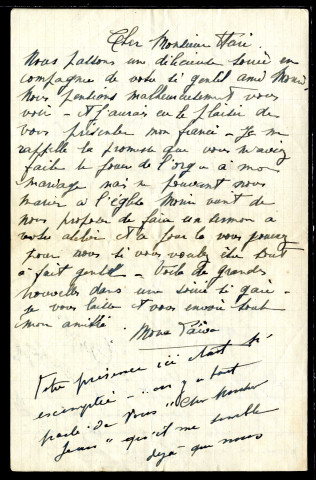 Cher Monsieur
Nous passons une délicieuse soirée en
compagnie de votre si gentil ami Morin,
Nous pensions malheureusement vous
voir - et j'aurais eu le plaisir de
vous présenter mon fiancé - Je me
rappelle la promesse que vous m'aviez
faite de jouer de l'orgue à mon
mariage mais ne pouvant nous
marier à l'église Morin vient de
nous proposer de faire un sermon à
votre atelier et ce jour là vous jouerez
pour nous si vous voulez être tout
à fait gentil - Voilà de grandes
nouvelles dans une soirée si gaie -
Je vous laisse et vous envoie toute
mon amitié. Mona Païva
Votre présence ici était si
escomptée - on y a tant
parlé de vous "Cher Monsieur
" qu'il me semble
déjà que nous